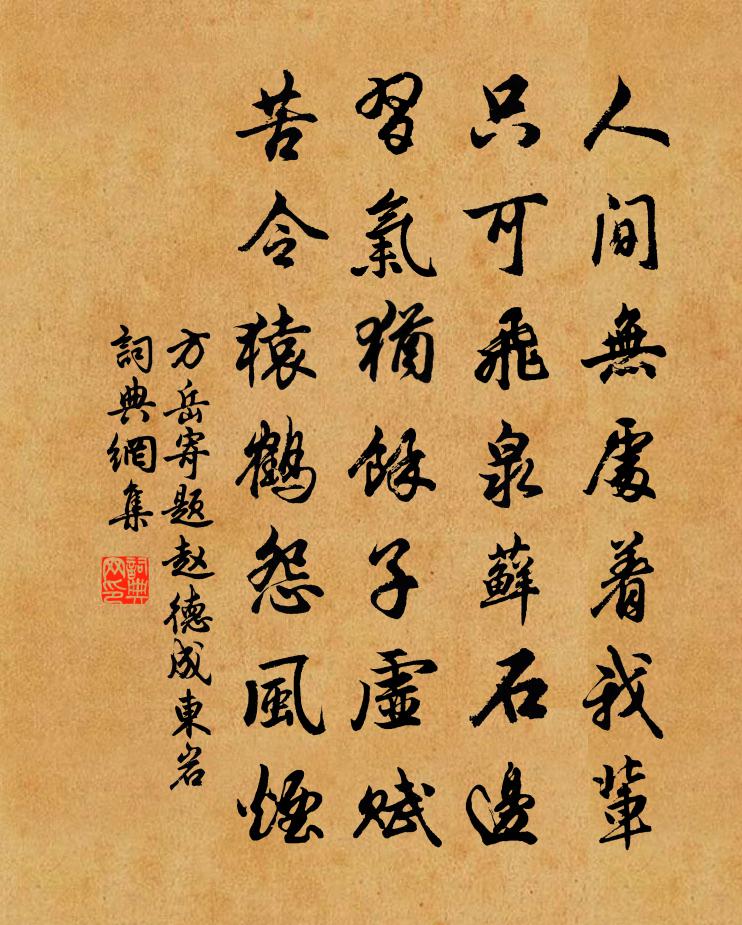 人間無處着我輩
只可飛泉蘚石邊
習氣猶餘子虛賦
苦令猿鶴怨風煙
方岳寄题赵德成東岩
詞典網集
詞典
网印